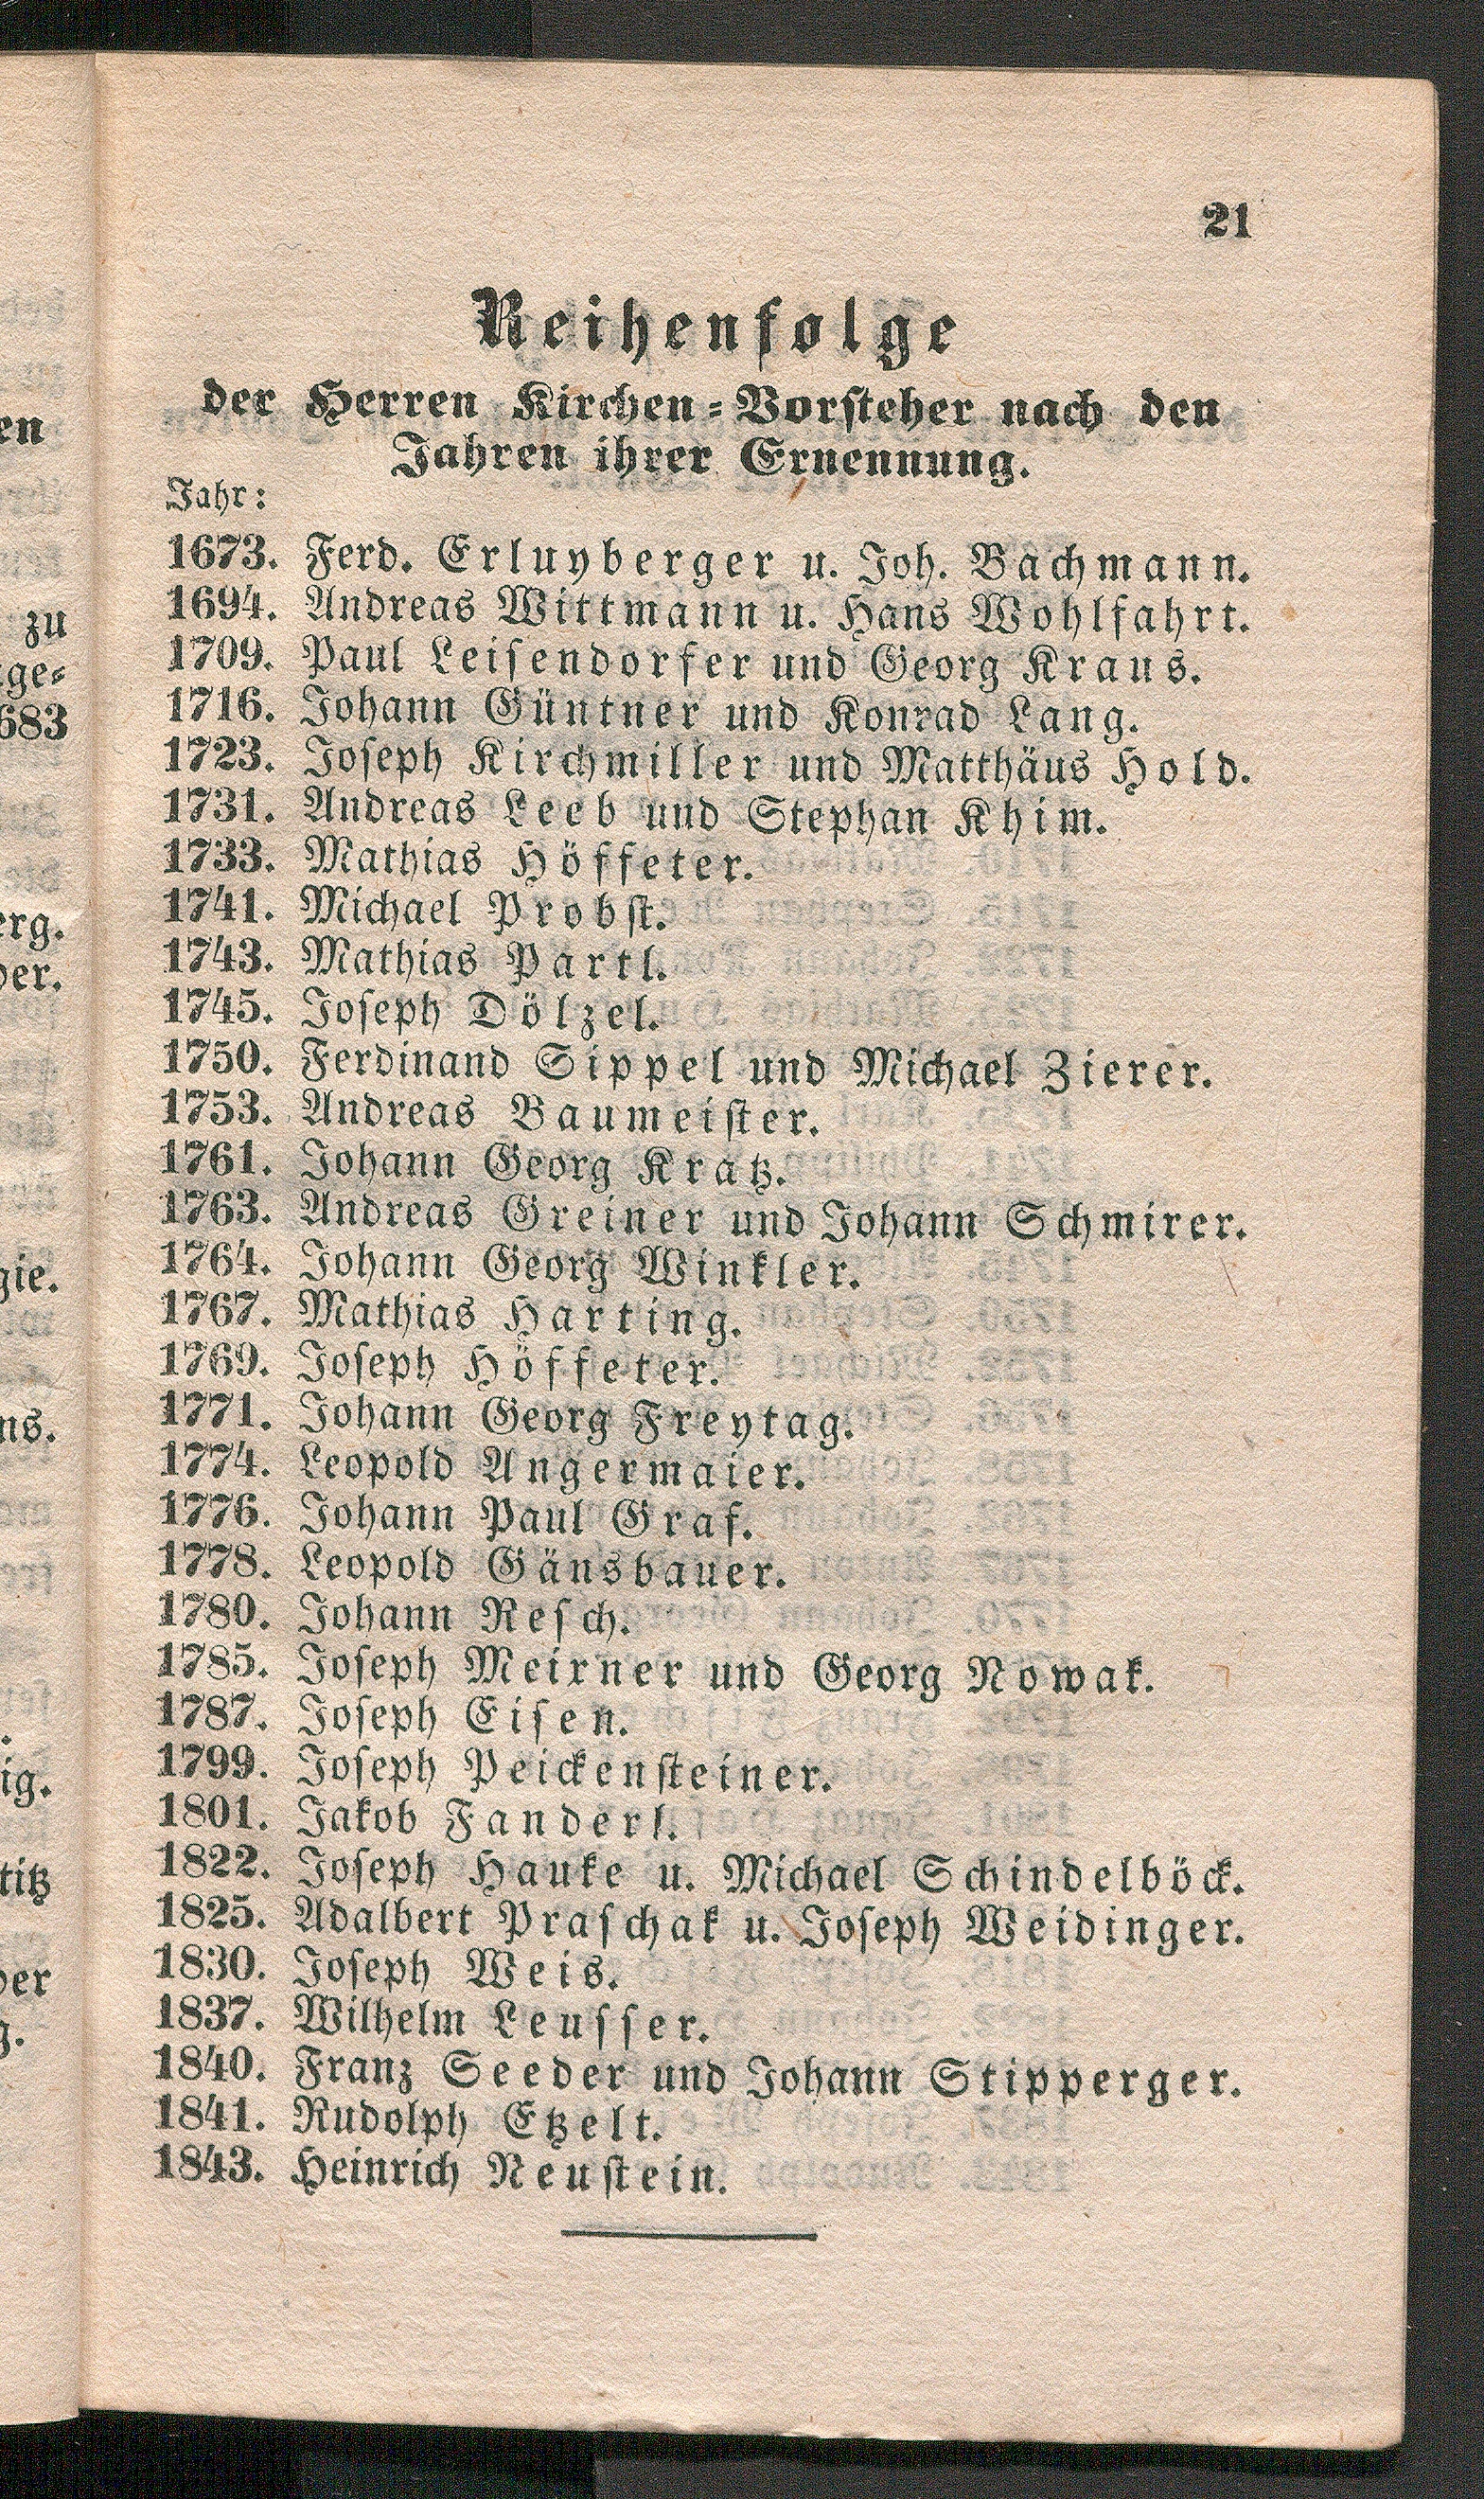 21
Reihenfolge
der Herren Kirchen-Vorsteher nach den
Jahren ihrer Ernennung.
Jahr:
1673. Ferd. Erluyberger u. Joh. Bachmann.
1694. Andreas Wittmann u. Hans Wohlfahrt.
1709. Paul Leisendorfer und Georg Kraus.
1716. Johann Güntner und Konrad Lang.
1723. Joseph Kirchmiller und Matthäus Hold.
1731. Andreas Leeb und Stephan Khim.
1733. Mathias Höffeter.
1741. Michael Probst.
1743. Mathias Partl.
1745. Joseph Dölzel.
1750. Ferdinand Sippel und Michael Zierer.
1753. Andreas Baumeister.
1761. Johann Georg Kratz.
1763. Andreas Greiner und Johann Schmirer.
1764. Johann Georg Winkler.
1767. Mathias Harting.
1769. Joseph Höffeter.
1771. Johann Georg Freytag.
1774. Leopold Angermaier.
1776. Johann Paul Graf.
1778. Leopold Gänsbauer.
1780. Johann Resch.
1785. Joseph Meixner und Georg Nowak.
1787. Joseph Eisen.
1799. Joseph Peickensteiner.
1801. Jakob Fanderl.
1822. Joseph Hauke u. Michael Schindelböck.
1825. Adalbert Praschak u. Joseph Weidinger.
1830. Joseph Weis.
1837. Wilhelm Leusser.
1840. Franz Seeder und Johann Stipperger.
1841. Rudolph Etzelt.
1843. Heinrich Neustein.